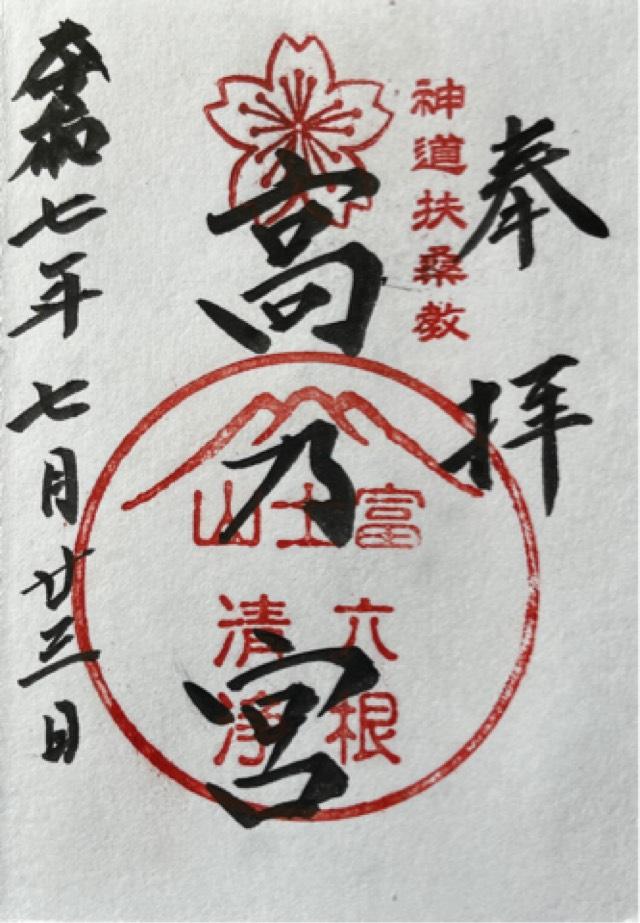 奉拝
神道扶桑教
高乃宮
富士山
六根
清浄
令和七年七月廿三日